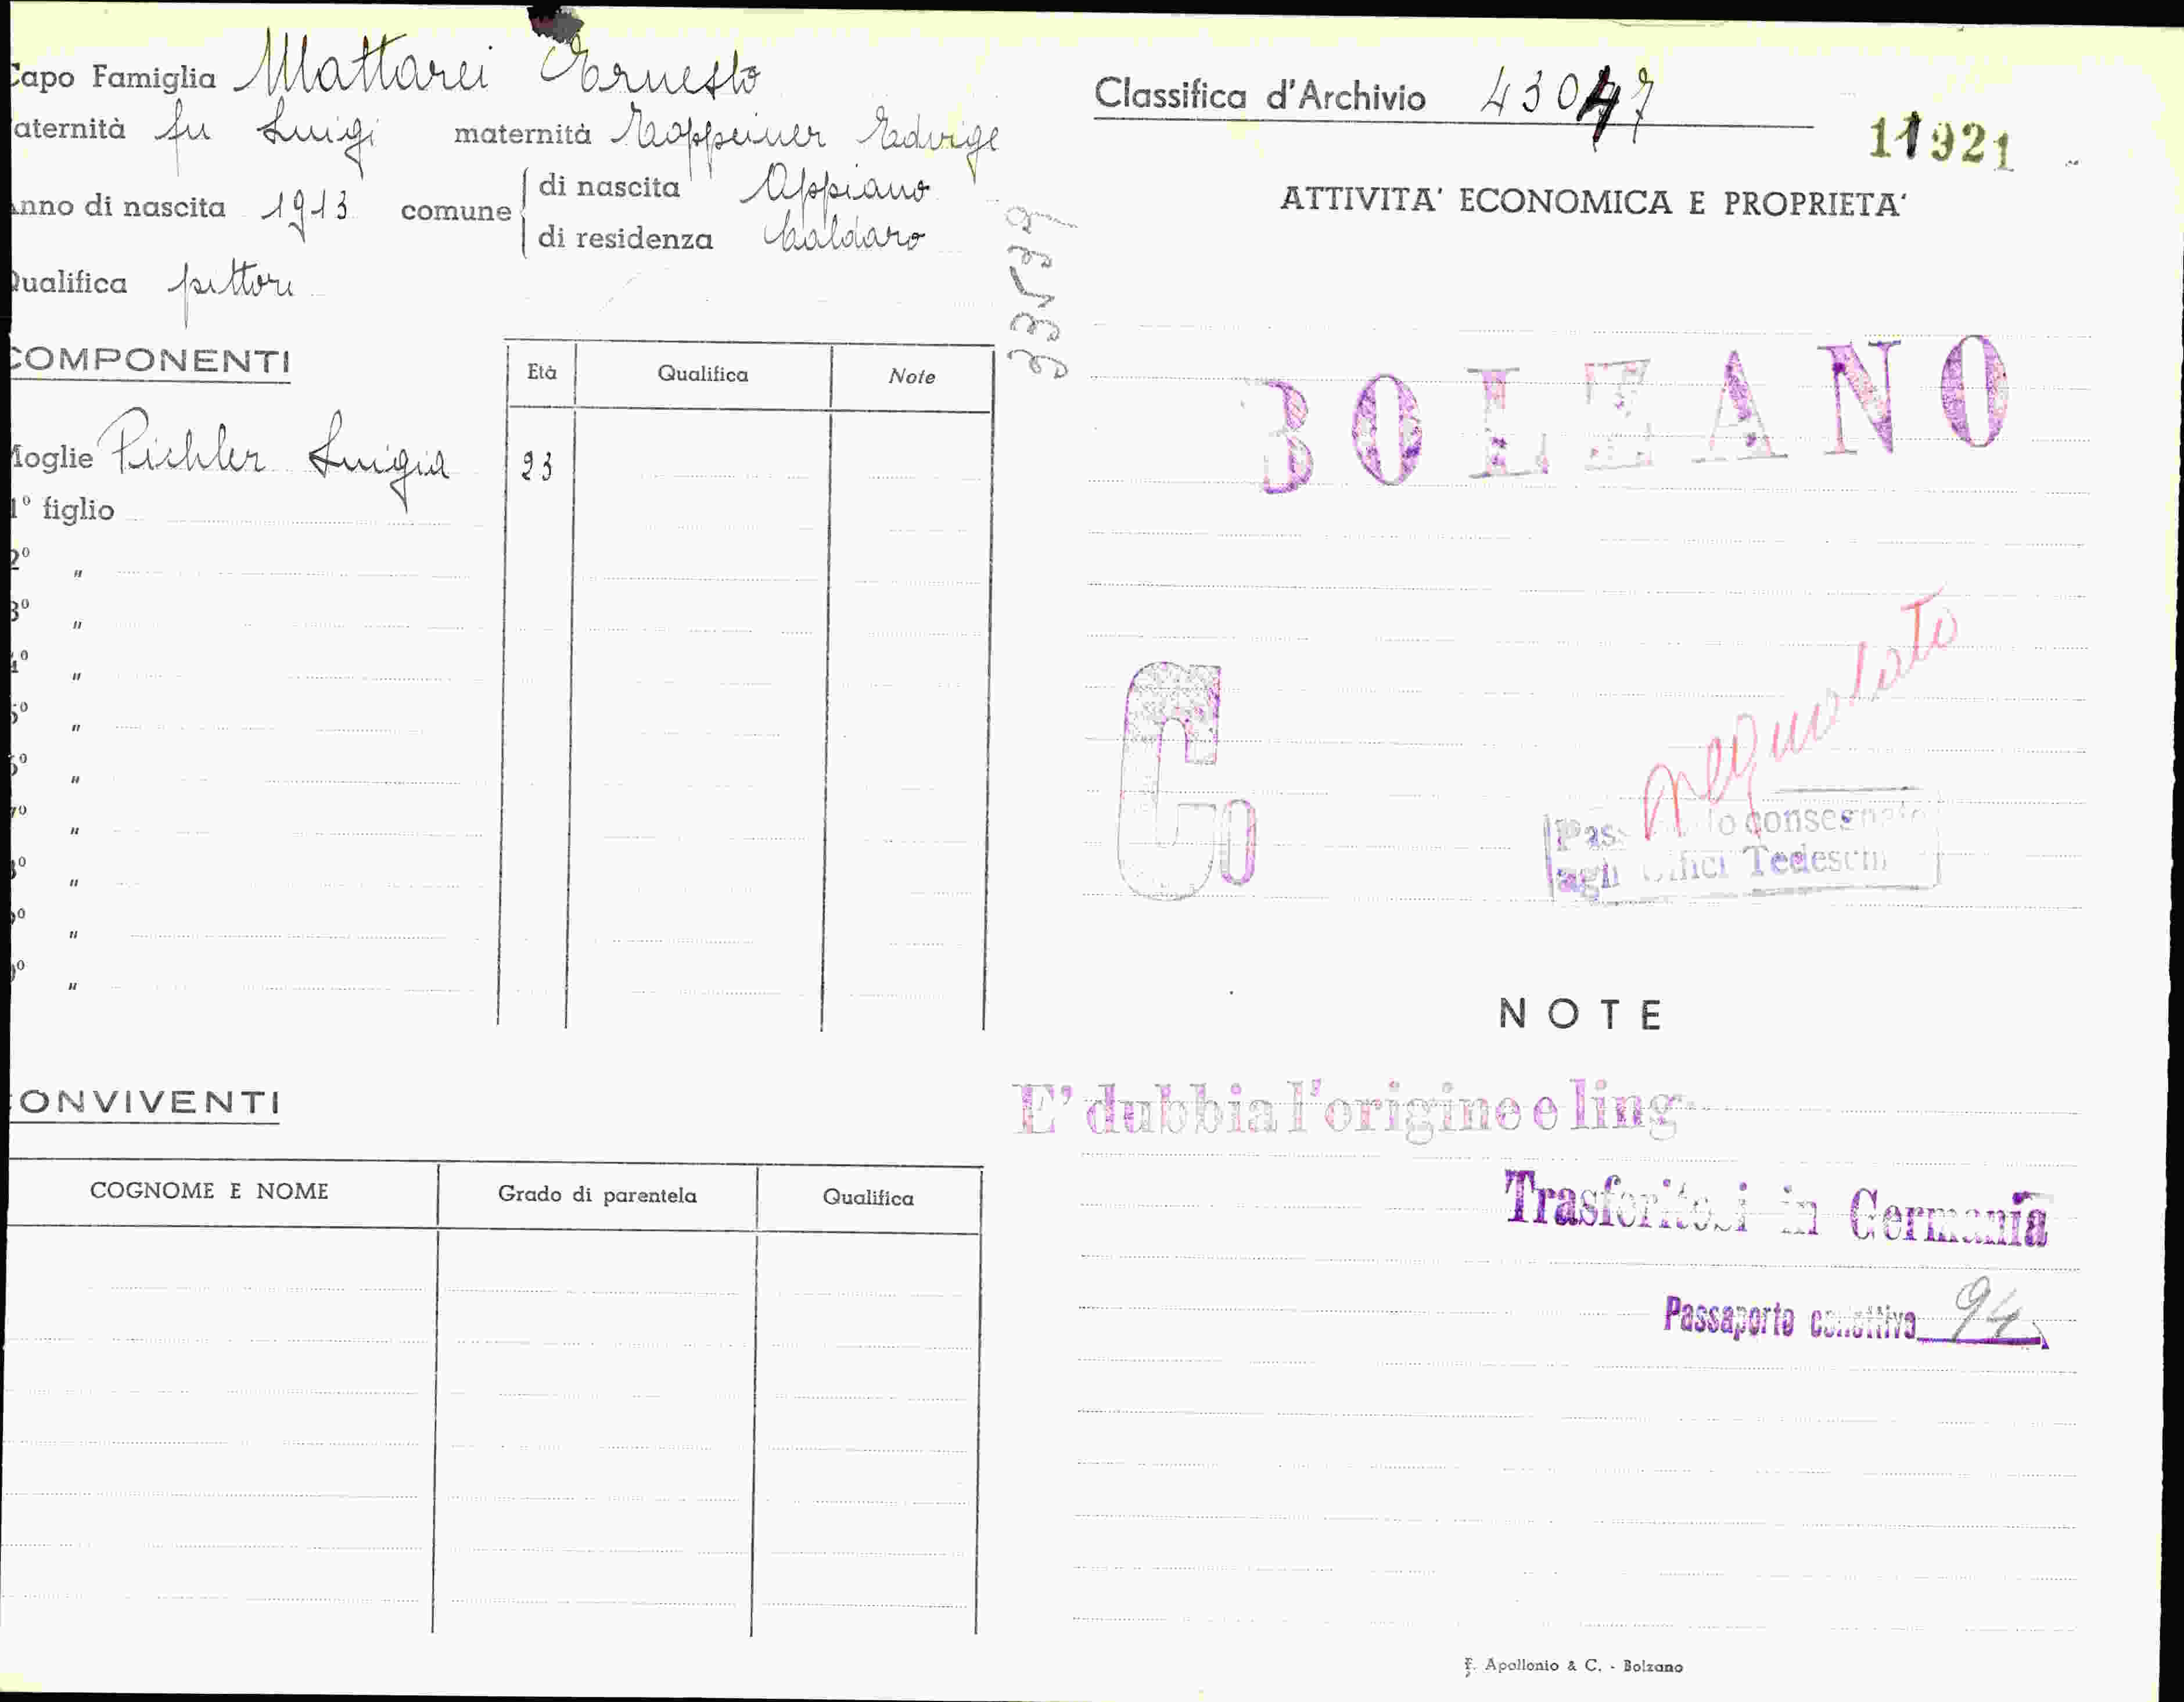 Capo Famiglia Mattarei Ernesto
aternità fu Luigi maternità Koppeiner Edvige
Anno di nascita 1913 comune di nascita Appiano
di residenza Caldaro
Qualifica pittore
COMPONENTI
Età Qualifica Note
Moglie Pichler Luigia 23
1º figlio
2º "
3º "
4º "
5º "
6º "
7º "
8º "
9º "
0º "
CONVIVENTI
COGNOME E NOME Grado di parentela Qualifica
33539
Classifica d'Archivio 43047
11921
ATTIVITA' ECONOMICA E PROPRIETA'
BOLZANO
Co
consegnato
agli Uffici Tedeschi
NOTE
E' dubbia l'origine e ling
Trasferitosi in Germania
Passaporto collettivo 94
F. Apollonio & C. - Bolzano